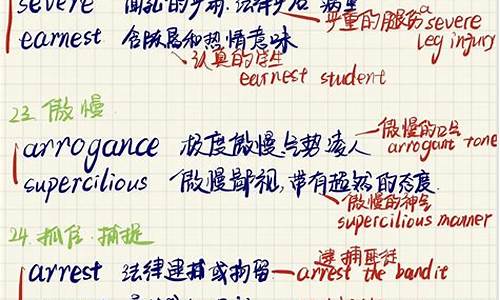 severe 的 法律 严重的腿伤 a severe
leg injury
earnest 含 和热情意味
认真的学生
earnest student
23. 傲慢
arrogance 极度傲慢,气势凌人 傲慢的口气
arrogant tone
supercilious 傲慢鄙视,带有超然的态度
傲慢的神气
supercilious manner
24. 抓住.捕捉
arrest 法律逮捕或拘留 逮捕匪徒
arrest the bandit